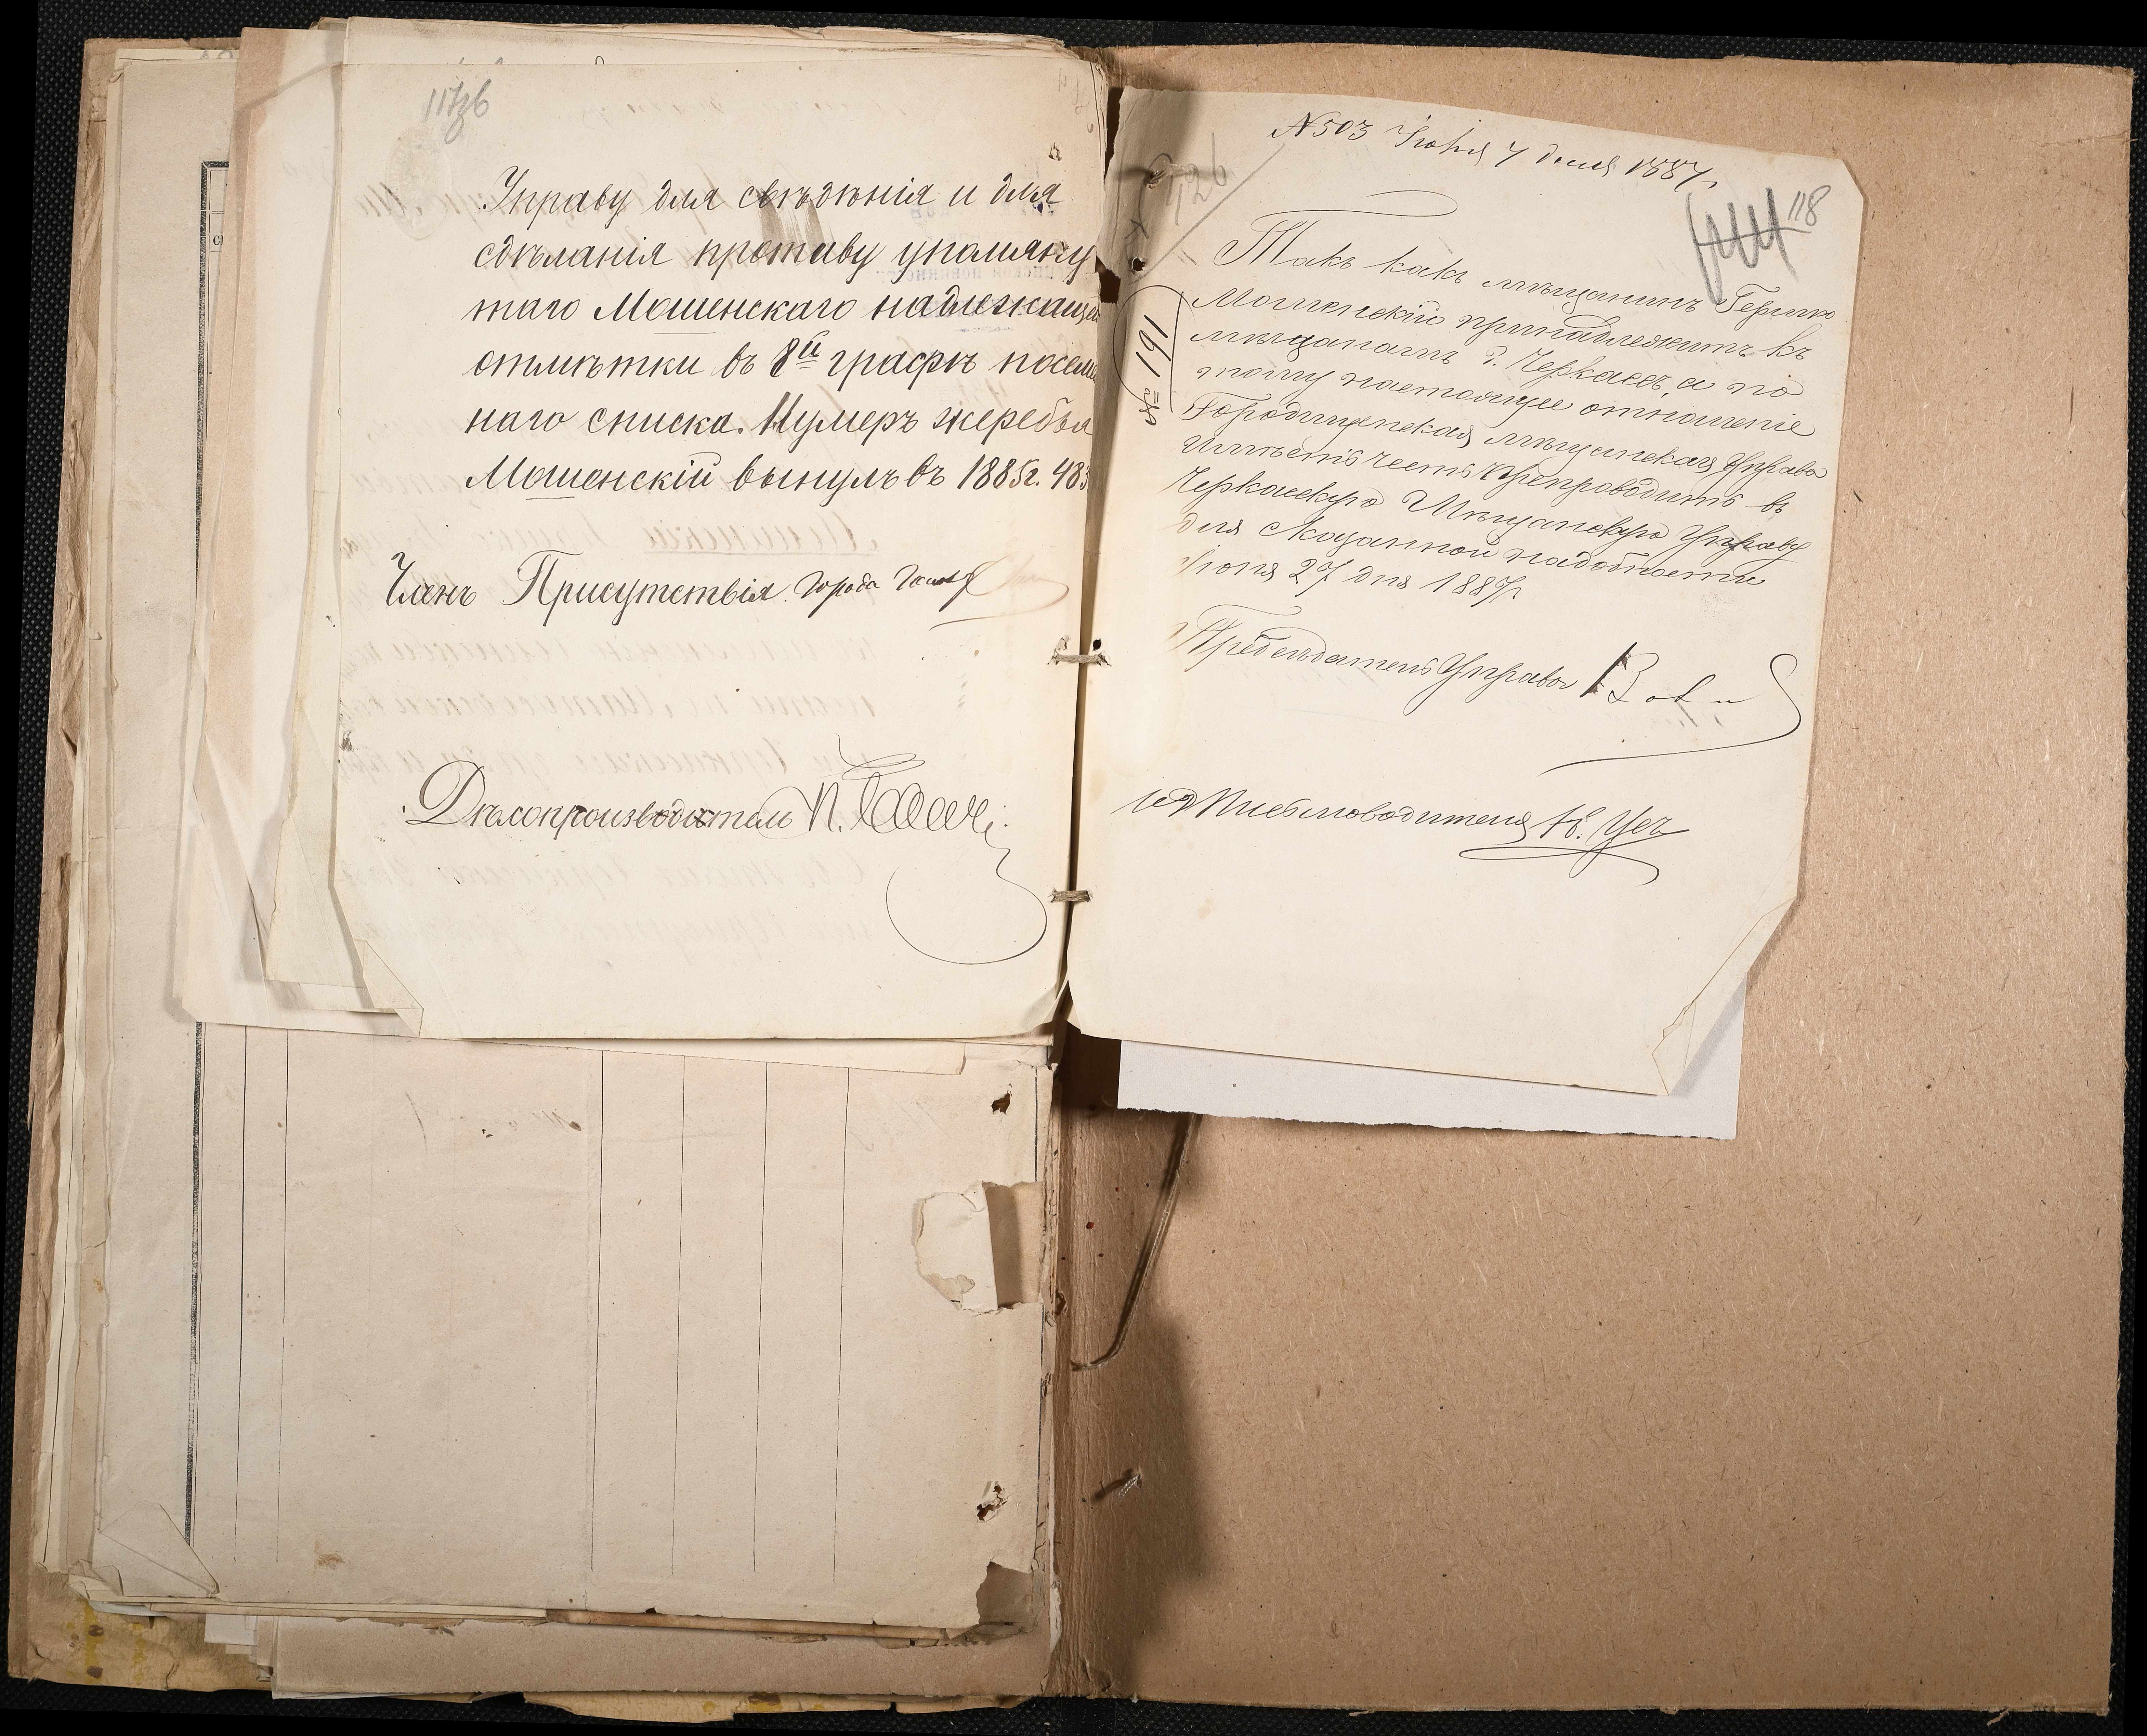 Управу для свѣдѣнія и для
сдѣланія противу упомяну
таго Мошенскаго надлежащей
отмѣтки въ 8й графѣ посемей
наго списка. Нумеръ жеребья
Мошенскій вынулъ въ 1885г. 483
Членъ Присутствія
Дѣлопроизводитель П.
118
№ 503 Іюня дня 1887г.
191
Такъ какъ мѣщанинъ Гершко
Мошенскій принадлежитъ къ
мѣщанамъ г. Черкассъ, а по
тому настоящее отношеніе
Городищенская мѣщанская Управа
имѣетъ честь препроводить въ
Черкасскую Мѣщанскую Управу
для сказанной надобности
Іюня 27 дня 1887г.
Предсѣдатель Управы
ИД Письмоводителя